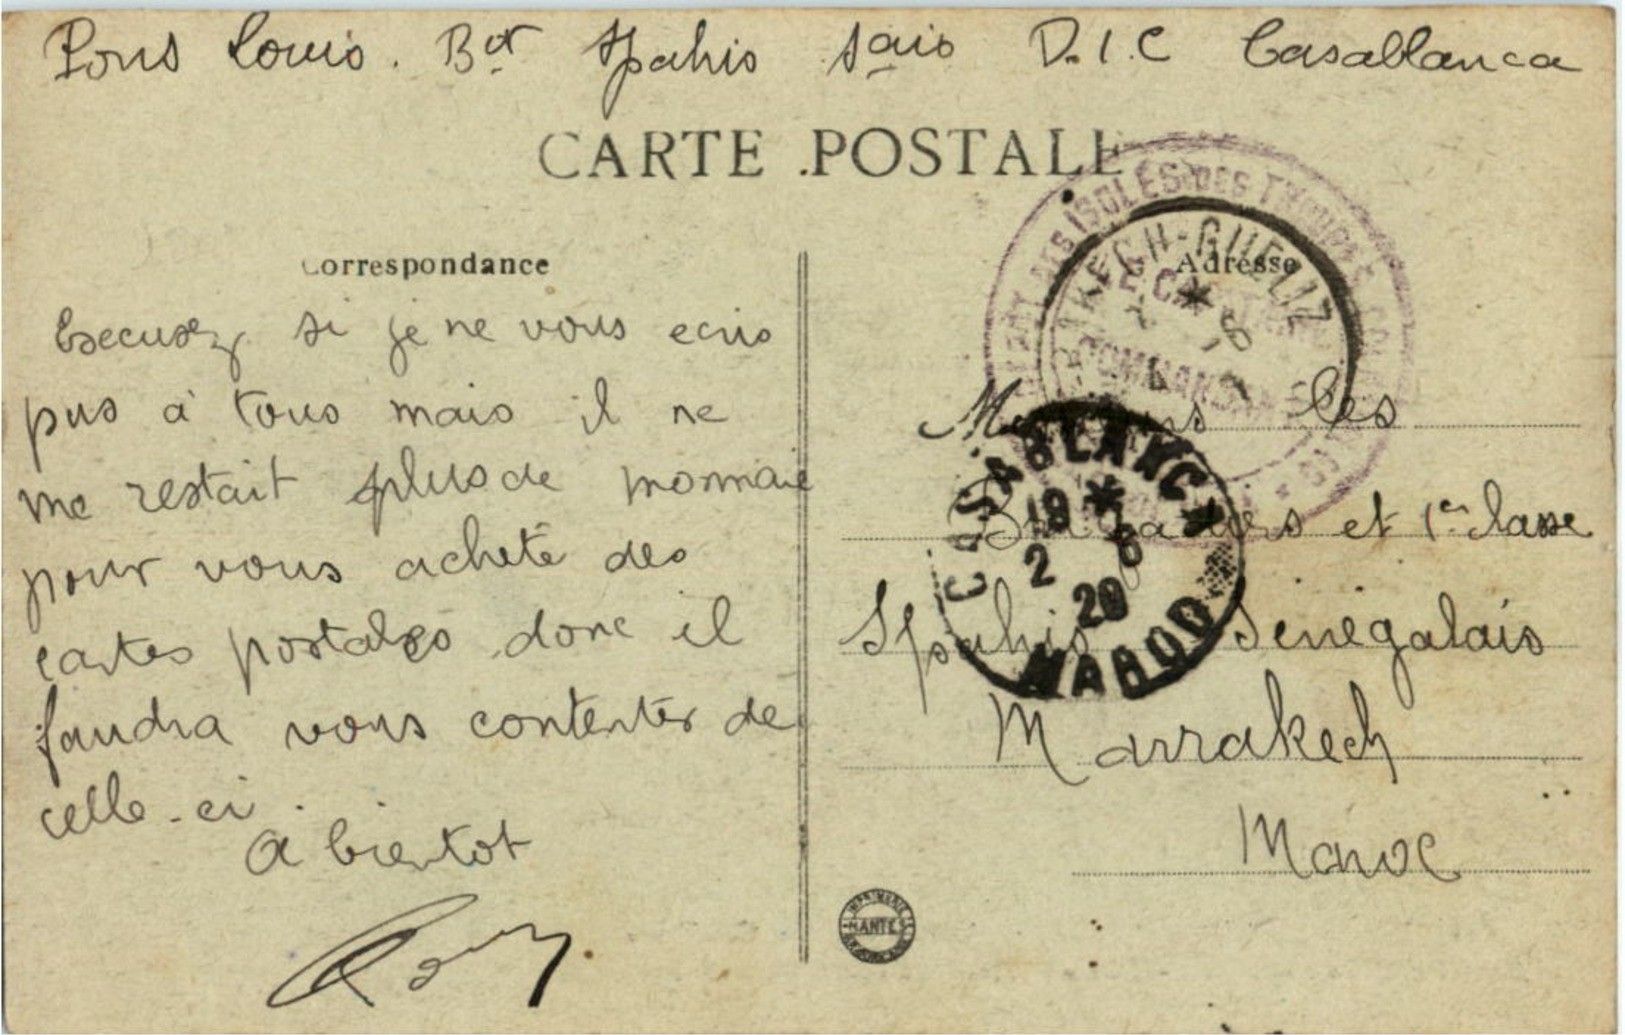 Pons Louis. Ber Spahis Sais D.I.C Casablanca
CARTE POSTALE
Correspondance
Excusez si je ne vous ecris
pas à tous mais il ne
me restait plus de monnaie
pour vous acheté des
cartes postales donc il
faudra vous contenter de
celle-ci.
A bientot
Adresse
Messieurs les
et 1er classe
Spahis Sénégalais
Marrakech
Maroc
ISOLÉS DES TROUPES COL
KECH-GUELIZ
CASABLANCA
19 *
2 6
20
MAROC
IMPRIMERIE
NANTES